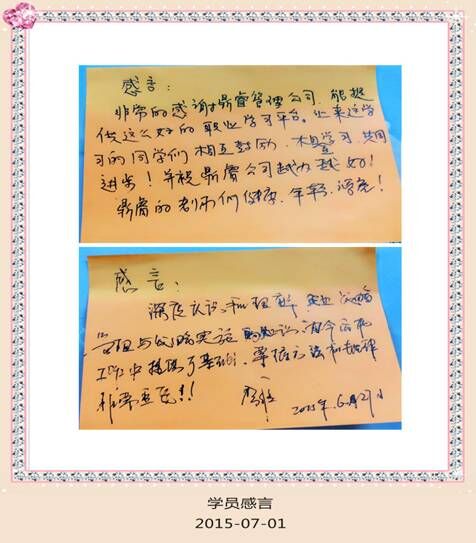 感言：
非常的感谢鼎睿管理公司，能提
供这么好的职业学习平台。让来这学
习的同学们相互鼓励，相互学习，共同
进步！并祝鼎睿公司越办越好！
鼎睿的老师们健康、年轻、漂亮！
感言：
深度认识和理解
与战略实施的知识，为今后在
工作中提供了基础，掌握方法和规律
非常重要！！
2015年6月27日
学员感言
2015-07-01